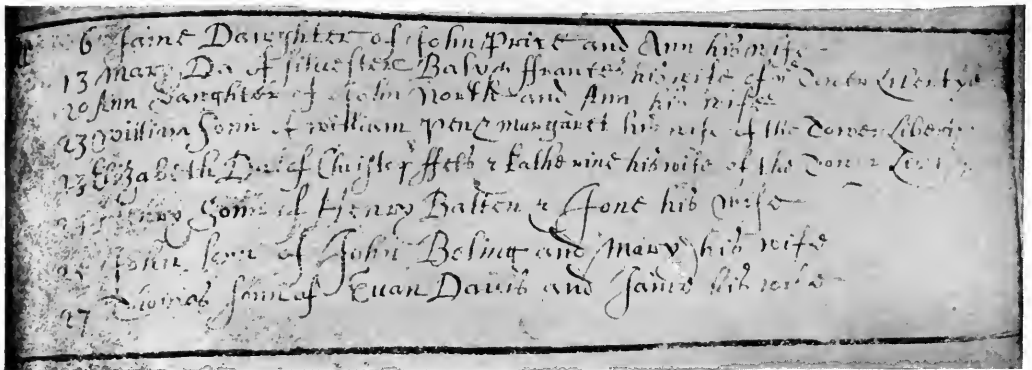 6 Jaine Daughter of John Prixe and Ann his wife
13 Mary Da of siluester Balva ffrantes his wife of ye Tower
20 Ann Daughter of John North and Ann his wife
23 william Sonn of william Penn & margaret his wife of the Tower Liberty
23 Elizabeth Da of Christop ffells & katherine his wife of the Tower
Henry Sonn of Henry Batten & Jone his wife
John sonn of John Beling and Mary his wife
27 Thomas sonn of Evan Davis and Jaine his wife